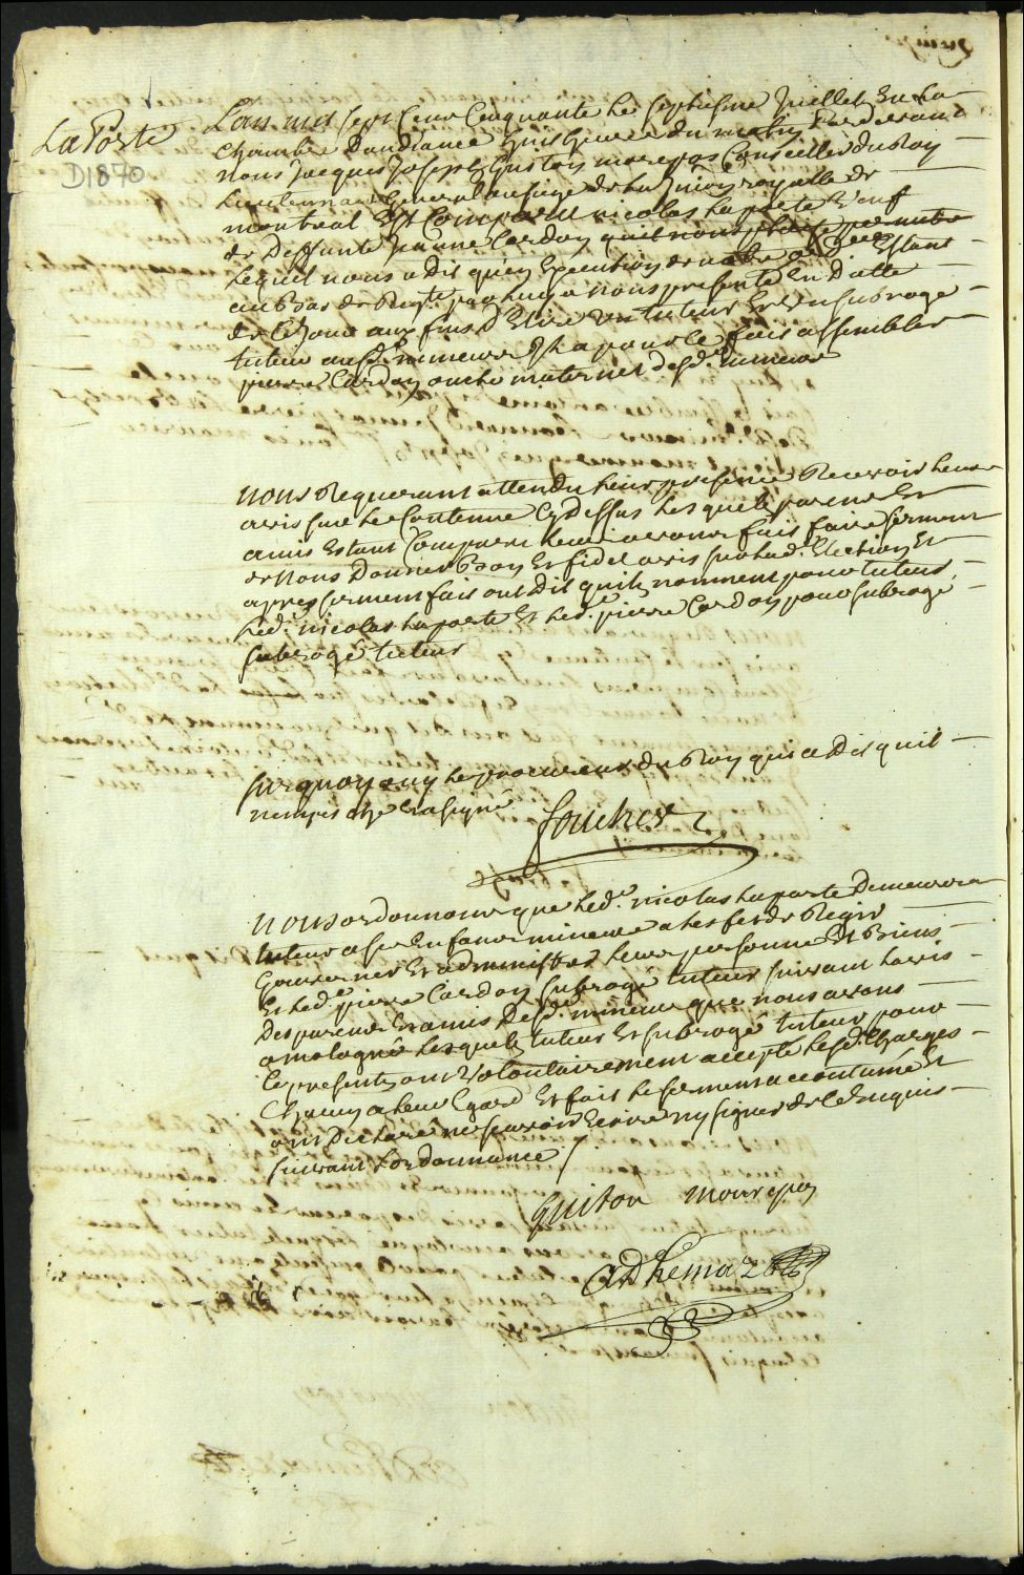 La Porte
D1870
Lan mil sept Cens Cinquante le septiesme Juillet En La
chambre Daudiance huit heures du matin Pardevant
nous Jacques Joseph Guiton monrepos Conseiller du Roy
Lieutenant General au siege de la Jurisdiction royalle de
montreal Est Comparu nicolas Laporte veuf
de Deffunte Jeanne Cardon
Lequel nous a dit qu'en Execution de notre ord.ce Estant
au Bas de Reqte par luy a nous presenté En Datte
de Ce Jour aux fins D'Elire un tuteur Et un subrogé
tuteur aux d. mineurs Il a pour le fait assembler
pierre Cardon oncle maternel des d. mineurs
nous Requerant attendu leur presence Recevoir leur
avis sur le Contenue Cy Dessus lesquels parens Et
amis Estant Comparu leur avons fait faire serment
de nous Donner Bon Et fidel avis sur lad. Election Et
apres serment fait ont Dit quils nomment pour tuteur
led. nicolas laporte Et led. pierre Cardon pour subrogé
subrogé tuteur
sur quoy ouy le procureur du Roy qui a Dit quil
n'empesche Et a signé Foucher
nous ordonnons que led. nicolas laporte Demeurera
tuteur a ses Enfans mineurs a l'effet de Regir
Gouverner Et administrer leurs personne Et Biens
Et led. pierre Cardon subrogé tuteur suivant lavis
Des parens Et amis Des d. mineurs que nous avons
omologué lesquels tuteur Et subrogé tuteur pour
Ce presents ont Volontairement accepté lesd. Charges
Chacun a leur Egard Et fait le serment accoutumé Et
ont Declaré ne scavoir Ecrire ny signer de Ce Enquis
suivant Lordonnance /
Guiton monrepos
Adhemar